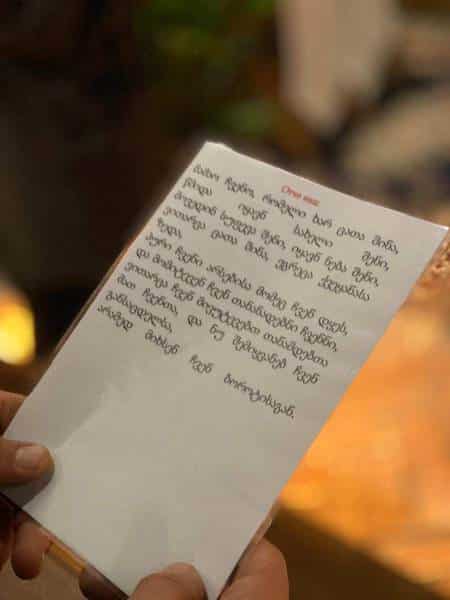 Отче наш
მამაო ჩვენო, რომელი ხარ ცათა შინა,
წმიდა იყავნ სახელი შენი,
მოვედინ სუფევა შენი, იყავნ ნება შენი,
ვითარცა ცათა შინა, ეგრეცა ქვეყანასა
ზედა,
პური ჩვენი არსებისა მომეც ჩვენ დღეს,
და მომიტევენ ჩვენ თანანადებნი ჩვენნი,
ვითარცა ჩვენ მივუტევებთ თანამდებთა
მათ ჩვენთა, და ნუ შემიყვანებ ჩვენ
განსაცდელსა,
არამედ მიხსენ ჩვენ ბოროტისაგან.